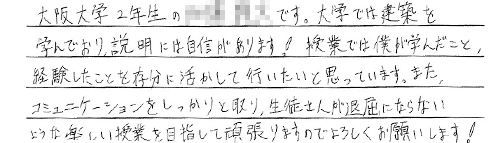 大阪大学2年生の です。大学では建築を
学んでおり、説明には自信があります! 授業では僕が学んだこと、
経験したことを存分に活かして行いたいと思っています。また、
コミュニケーションをしっかりと取り、生徒さんが退屈にならない
ような楽しい授業を目指して頑張りますのでよろしくお願いします!